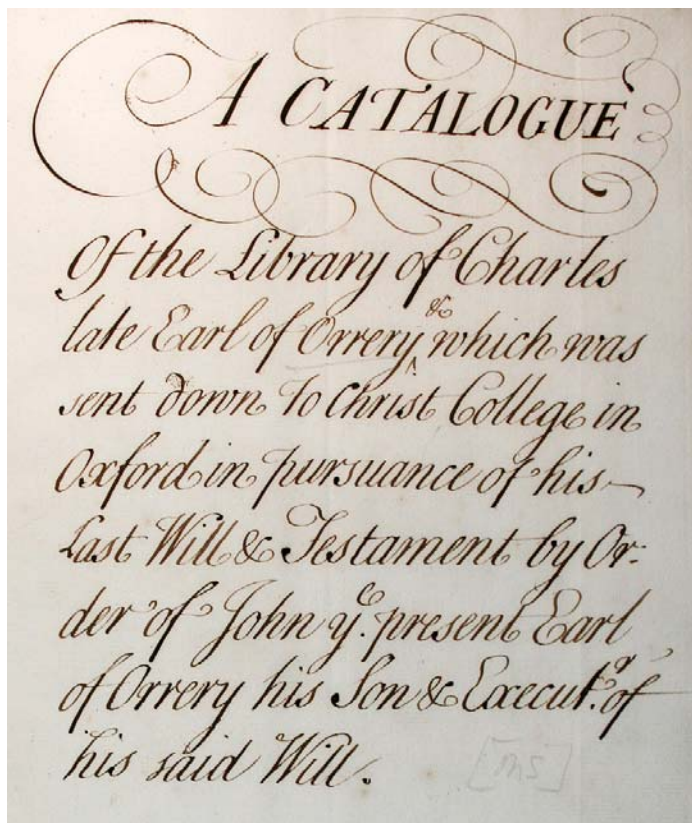 A CATALOGUE
Of the Library of Charles
late Earl of Orrery & which was
sent down to Christ College in
Oxford in pursuance of his
Last Will & Testament by Or-
der of John yᵉ. present Earl
of Orrery his Son & Execut.ᵒʳ of
his said Will.
[MS]